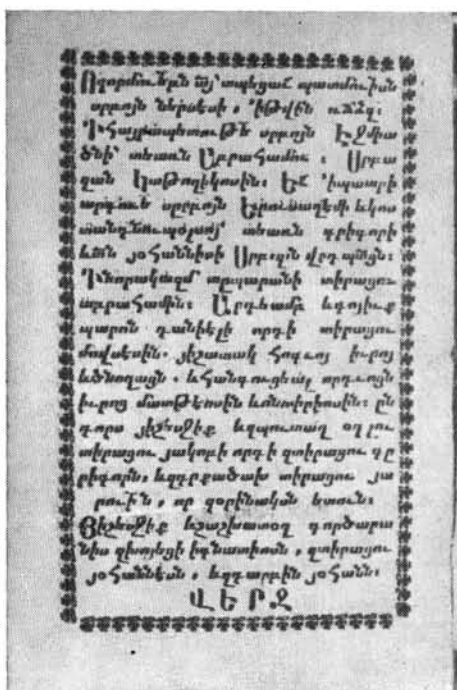 Ողորմութեամբ այ՝ տպեցաւ պատմութիւն
սրբոյն ներսեսի, ՚ի թվին ռճձզ։
՚Ի հայրապետութեն սրբոյն Էջմիա
ծնի՝ տեառն Աբրահամու։ Սրբա
զան կաթողիկոսին։ Եւ ՚ի պատրի
արգութե սրբոյն Երուսաղեմի և կոս
տանդնուպօլսոյ՝ տեառն գրիգորի
և տն յօհաննիսի Սրբազն վրդպտին։
՚Ի նորակազմ տպարանի տիրացու
աբրահամին։ Արդեամբ և գոյիւք
պարոն դանիէլի որդի տիրացու
մովսեսին. յիշատակ հոգւոյ իւրոյ
և ծնողացն. և հանգուցեալ որդւոցն
իւրոց մատթէոսին և
դորս յիշեսջիք և զպուտաղ օղլու
տիրացու յակոբի որդի զտիրացու գը
րիգորն, և զգրքածախ տիրացու յա
րութիւն, որ զօրինակն ետուն։
Յիշեսջիք և զաշխատօղ գործարա
նիս իգնատիոսն, զտիրացու
յօհաննէսն, և զգարբին յօհանն։
ՎԵՐՋ